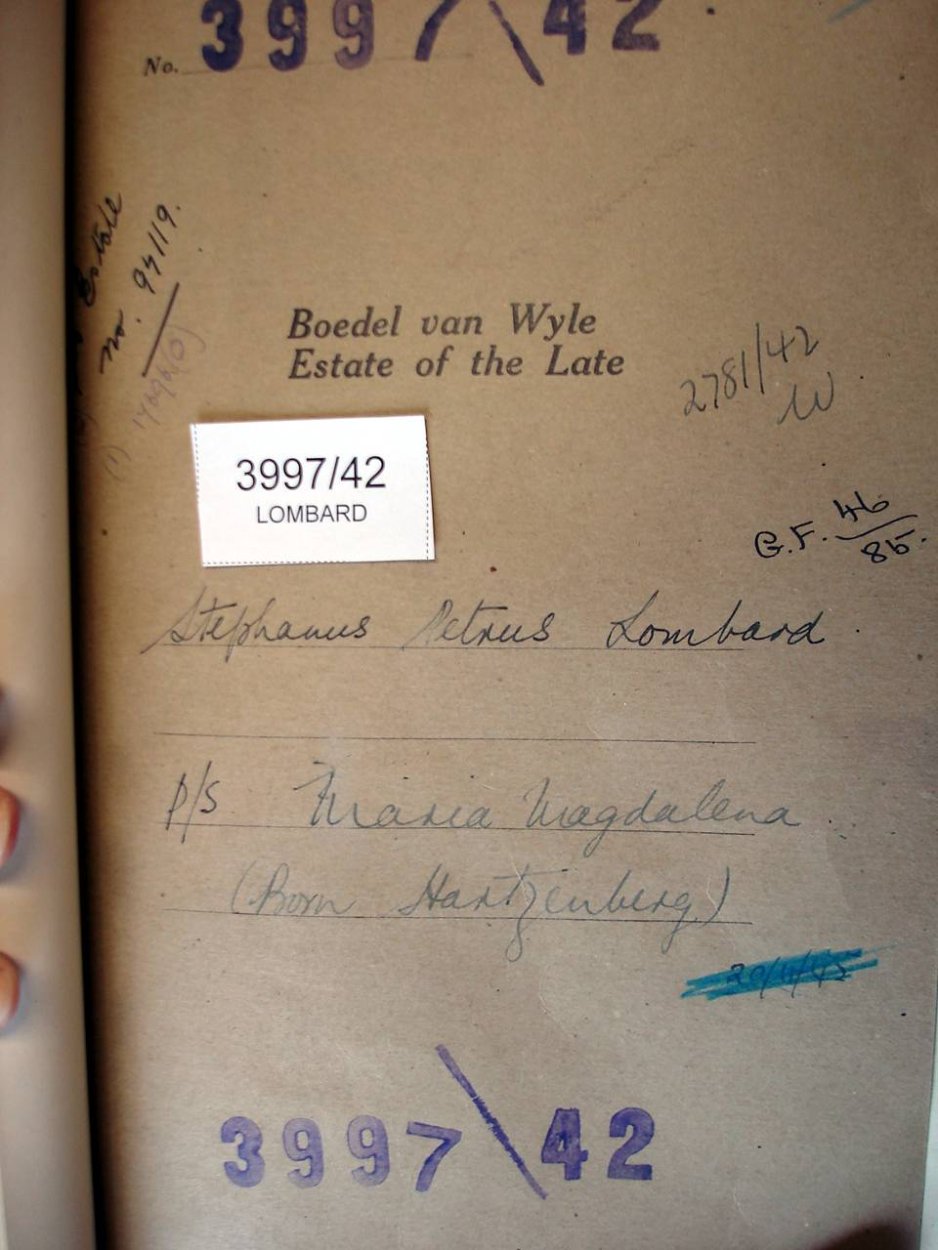 No. 3997\42
Estate
no. 94119.
Boedel van Wyle
Estate of the Late
2781/42
W
3997/42
LOMBARD
G.F. 46/85.
Stephanus Petrus Lombard.
P/S Maria Magdalena
(Born Hartzenberg)
3997\42